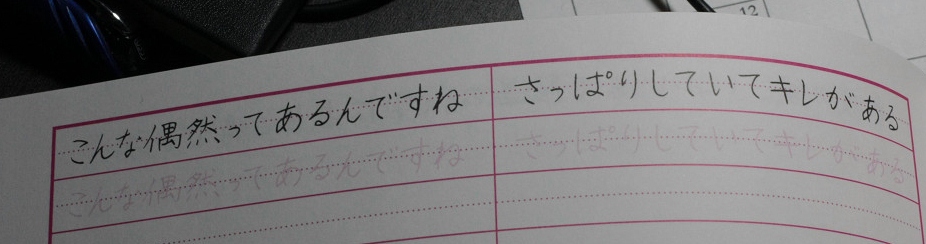 12
こんな偶然ってあるんですね
さっぱりしていてキレがある
こんな偶然ってあるんですね
さっぱりしていてキレがある